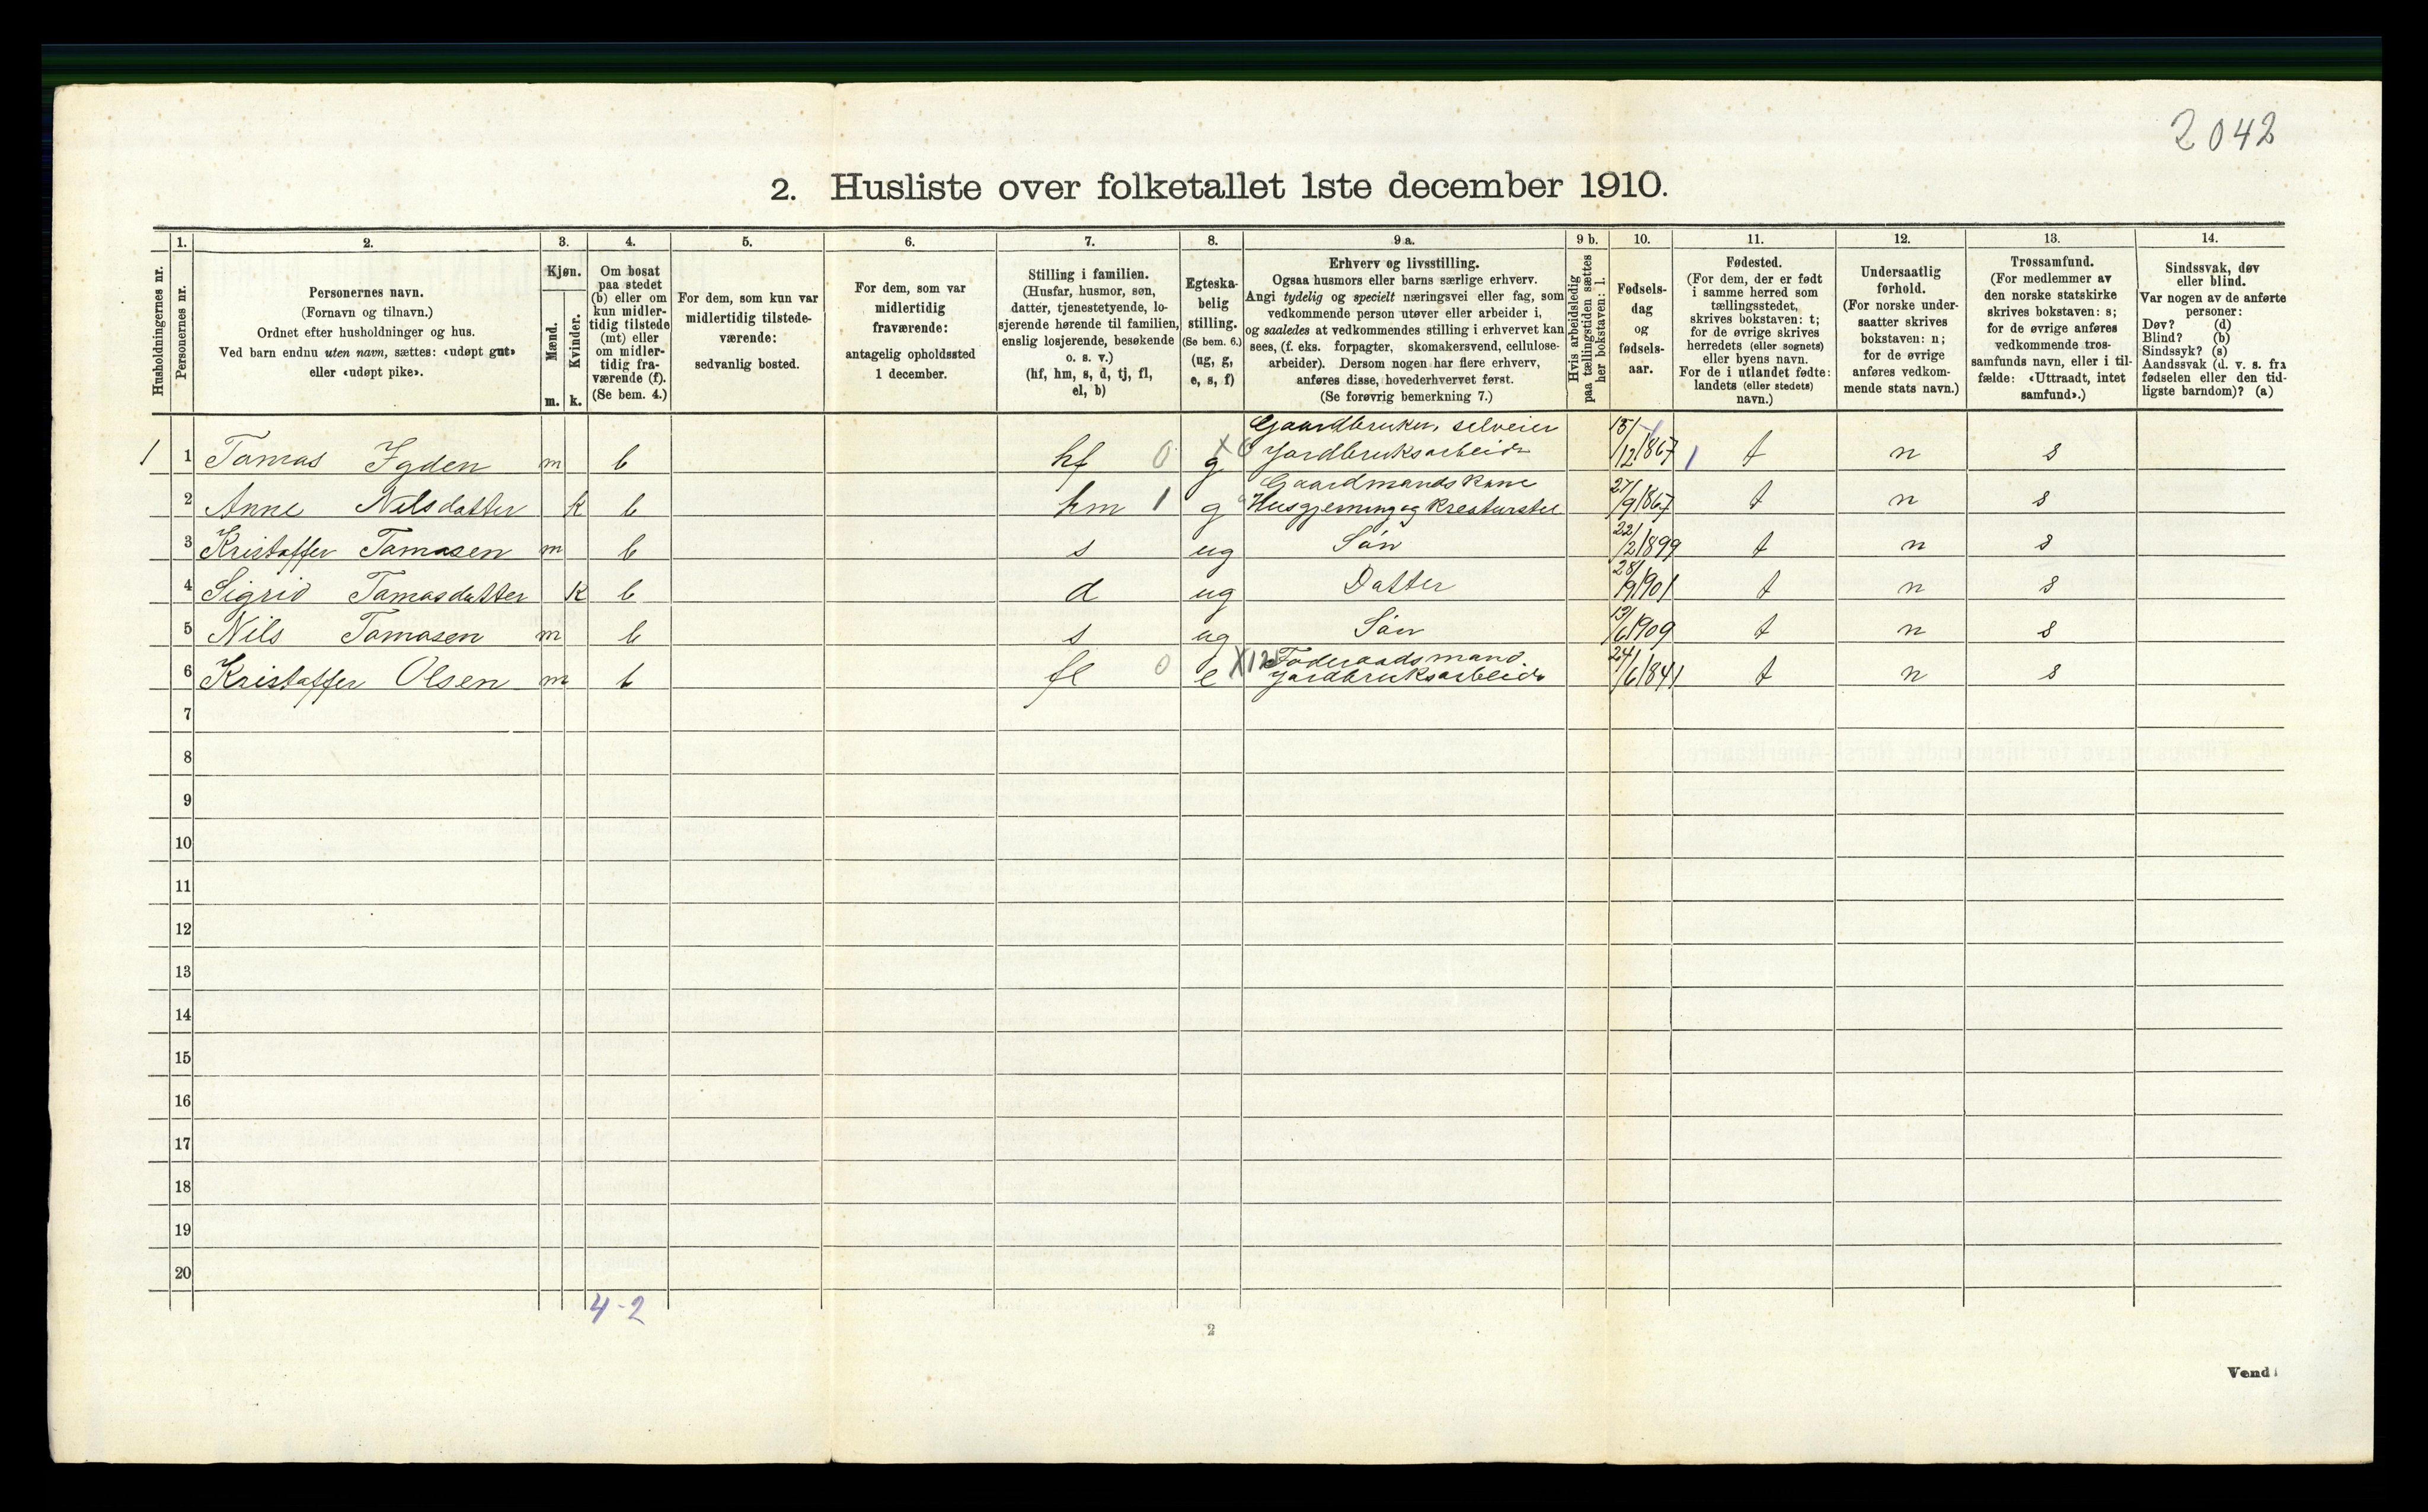 2042
2. Husliste over folketallet 1ste december 1910.
1. 2. 3. 4. 5. 6. 7. 8. 9 a. 9 b. 10. 11. 12. 13. 14.
Husholdningernes nr.
Personernes nr.
Personernes navn.
(Fornavn og tilnavn.)
Ordnet efter husholdninger og hus.
Ved barn endnu uten navn, sættes: «udøpt gut»
eller «udøpt pike».
Kjøn.
Mænd.
Kvinder.
m. k.
Om bosat
paa stedet
(b) eller om
kun midler-
tidig tilstede
(mt) eller
om midler-
tidig fra-
værende (f).
(Se bem. 4.)
For dem, som kun var
midlertidig tilstede-
værende:
sedvanlig bosted.
For dem, som var
midlertidig
fraværende:
antagelig opholdssted
1 december.
Stilling i familien.
(Husfar, husmor, søn,
datter, tjenestetyende, lo-
sjerende hørende til familien,
enslig losjerende, besøkende
o. s. v.)
(hf, hm, s, d, tj, fl,
el, b)
Egteska-
belig
stilling.
(Se bem. 6.)
(ug, g,
e, s, f)
Erhverv og livsstilling.
Ogsaa husmors eller barns særlige erhverv.
Angi tydelig og specielt næringsvei eller fag, som
vedkommende person utøver eller arbeider i,
og saaledes at vedkommendes stilling i erhvervet kan
sees, (f. eks. forpagter, skomakersvend, cellulose-
arbeider). Dersom nogen har flere erhverv,
anføres disse, hovederhvervet først.
(Se forøvrig bemerkning 7.)
Hvis arbeidsledig
paa tællingstiden sættes
her bokstaven: l.
Fødsels-
dag
og
fødsels-
aar.
Fødested.
(For dem, der er født
i samme herred som
tællingsstedet,
skrives bokstaven: t;
for de øvrige skrives
herredets (eller sognets)
eller byens navn.
For de i utlandet fødte:
landets (eller stedets)
navn.)
Undersaatlig
forhold.
(For norske under-
saatter skrives
bokstaven: n;
for de øvrige
anføres vedkom-
mende stats navn.)
Trossamfund.
(For medlemmer av
den norske statskirke
skrives bokstaven: s;
for de øvrige anføres
vedkommende tros-
samfunds navn, eller i til-
fælde: «Uttraadt, intet
samfund».)
Sindssvak, døv
eller blind.
Var nogen av de anførte
personer:
Døv? (d)
Blind? (b)
Sindssyk? (s)
Aandssvak (d. v. s. fra
fødselen eller den tid-
ligste barndom)? (a)
Gaardbruker, selveier
1 1 Tomas Igden m b hf 0 g x 0 Jordbruksarbeide 15/12 1867 1 t n s
Gaardmandskone
2 Anne Nilsdatter k b hm 1 g Husgjerning og Kreaturstel 27/9 1867 t n s
3 Kristoffer Tomasen m b s ug Søn 22/2 1899 t n s
4 Sigrid Tomasdatter k b d ug Datter 28/9 1901 t n s
5 Nils Tomasen m b s ug Søn 13/6 1909 t n s
Føderaadsmand
6 Kristoffer Olsen m b fl 0 e X12 Jordbruksarbeide 24/6 1841 t n s
7
8
9
10
11
12
13
14
15
16
17
18
19
20
4-2
2
Vend!